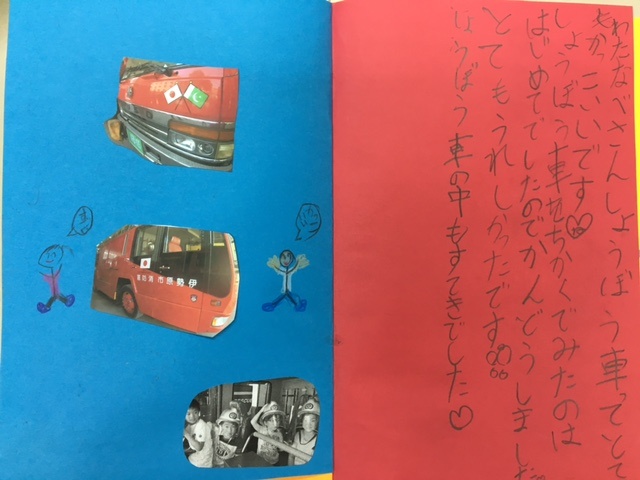 わたなべさんしょうぼう車ってとて
もかっこいいです♡
しょうぼう車をちかくでみたのは
はじめてでしたのでかんどうしました
とてもうれしかったです
しょうぼう車の中もすてきでした♡
伊勢原市消防